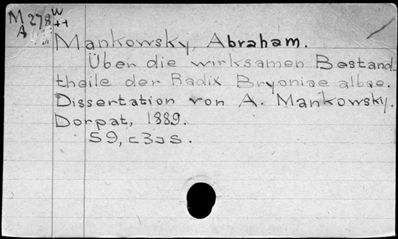 M 278 w
A ++
Mankowsky, Abraham.
Über die wirksamen Bestand
theile der Radix Bryoniae albae.
Dissertation von A. Mankowsky.
Dorpat, 1889.
59, [3] s.